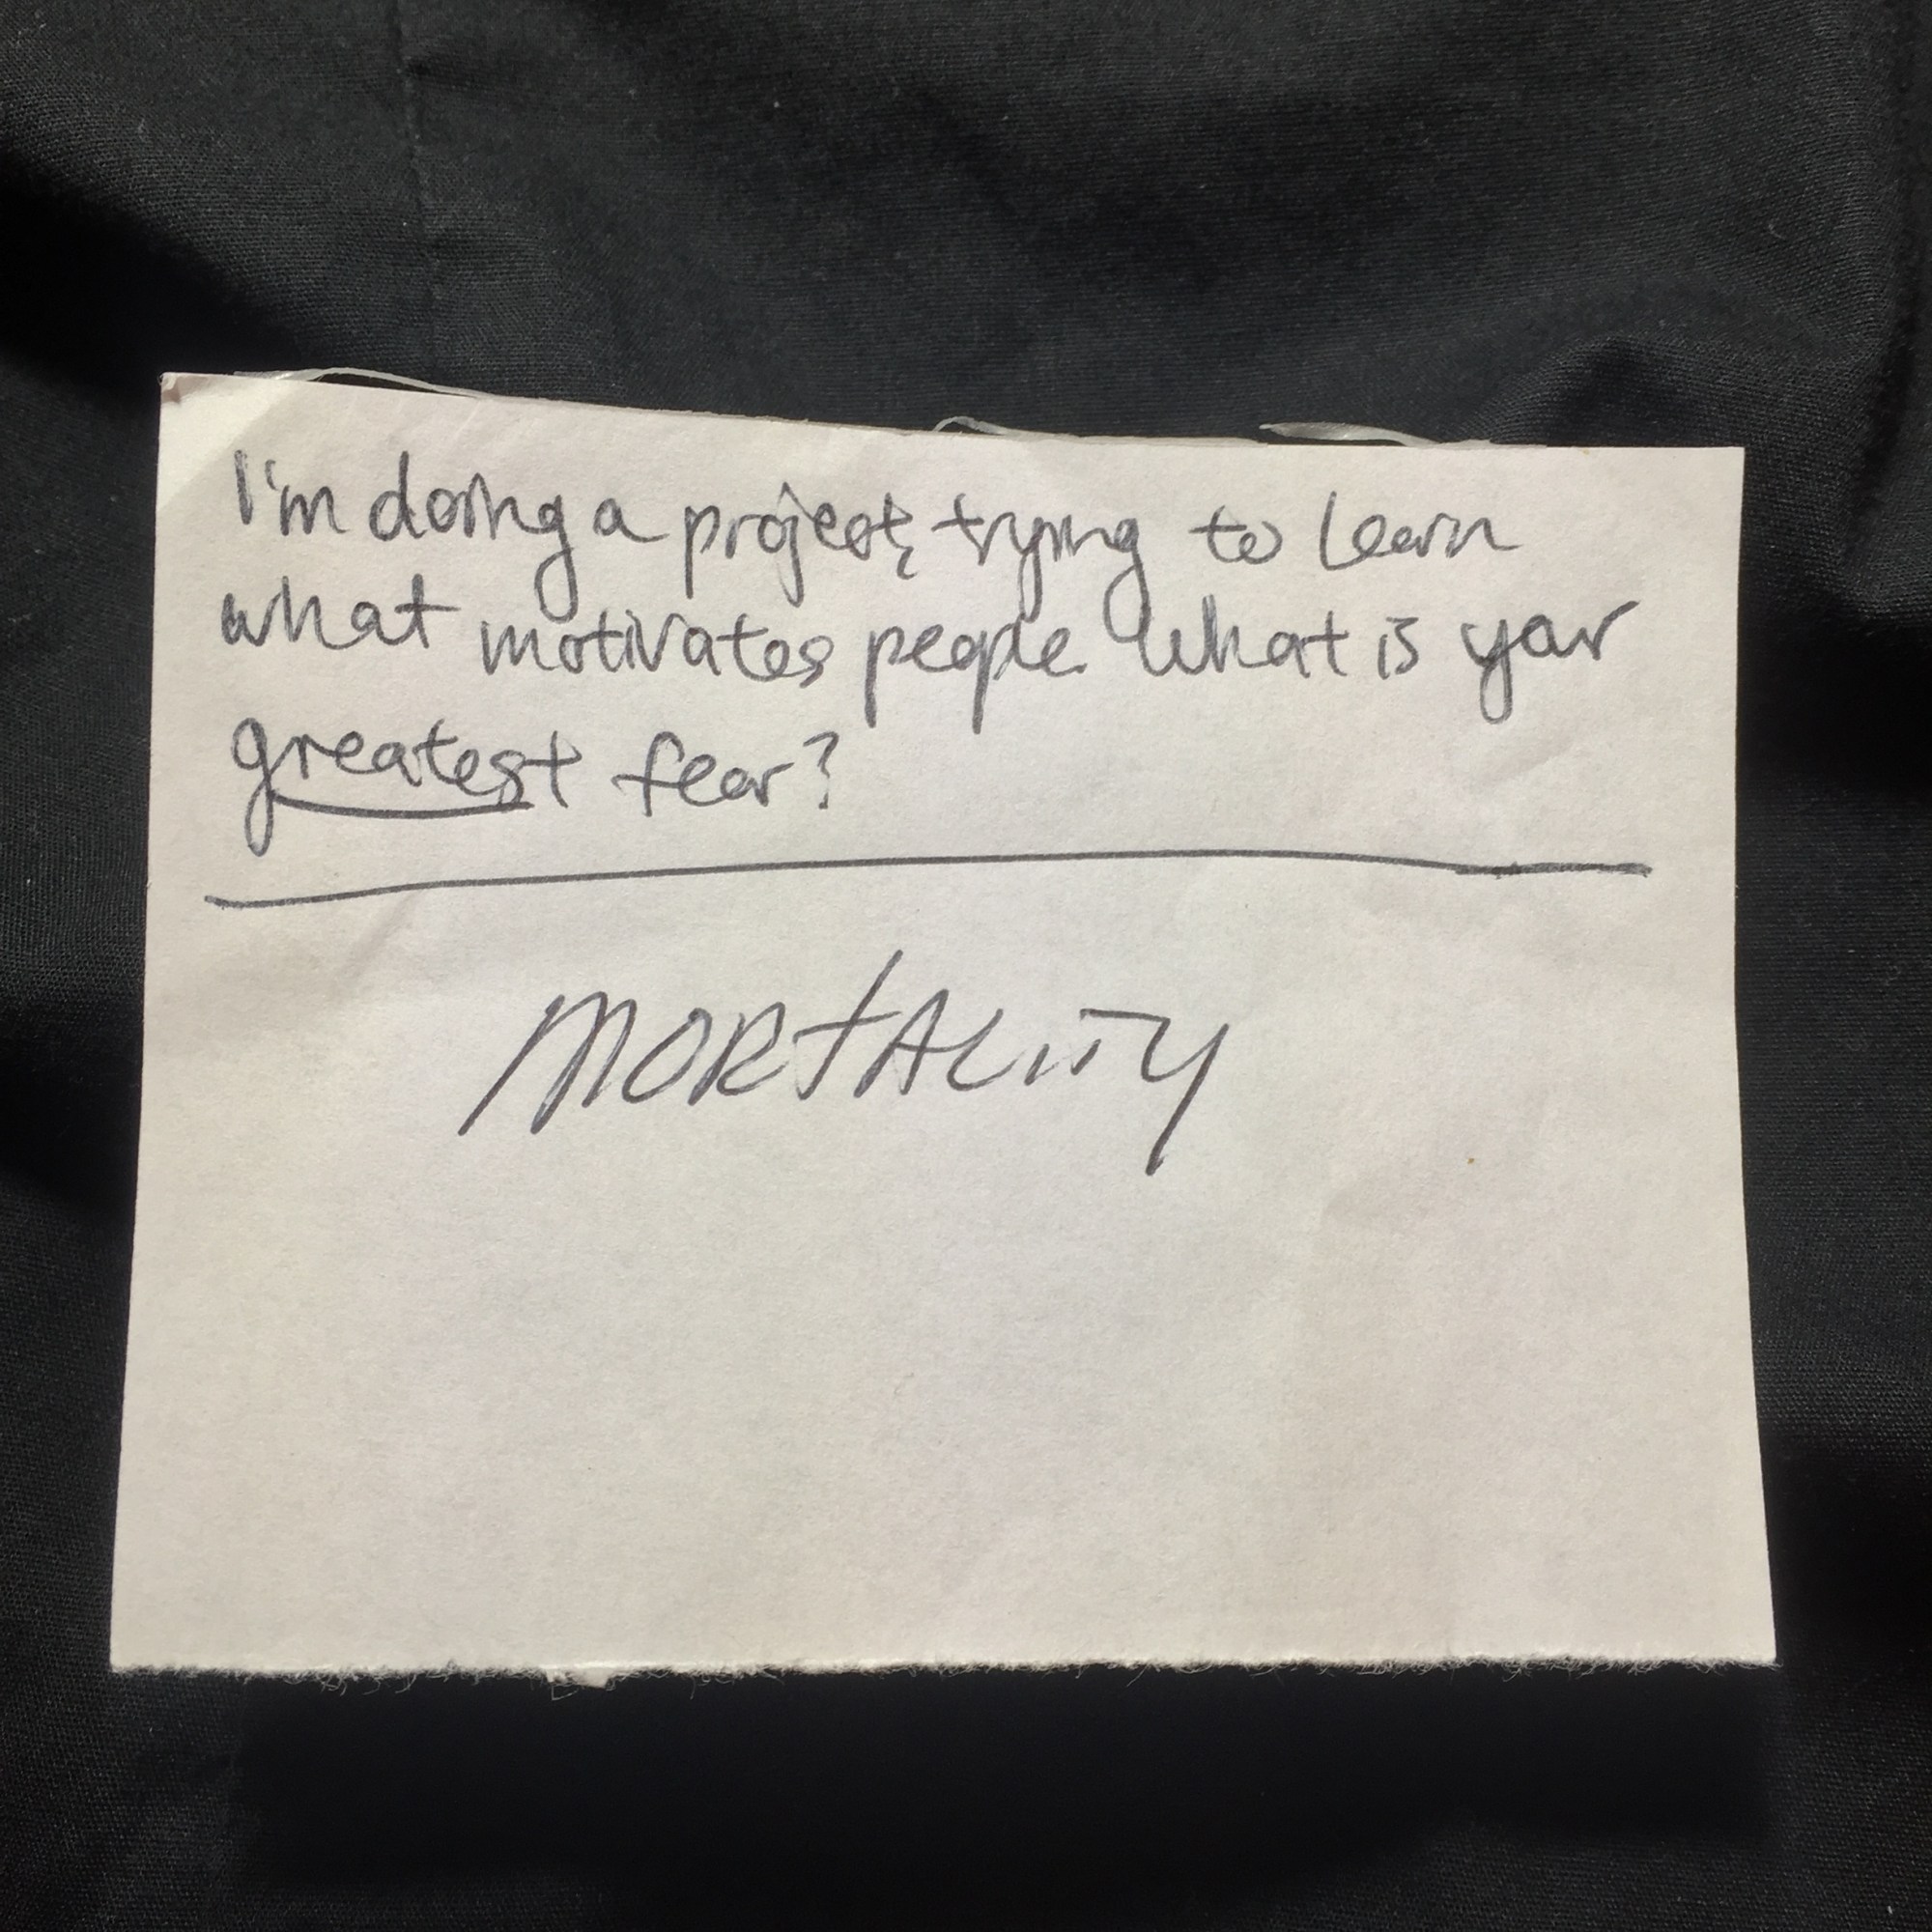 I'm doing a project, trying to learn
what motivates people. What is your
greatest fear?
MORTALITY